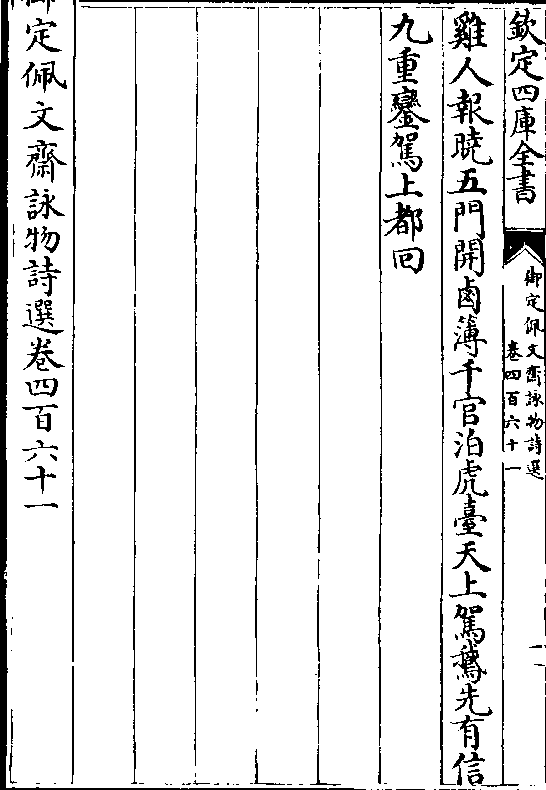 欽定四庫全書
御定佩文齋詠物詩選
卷四百六十一
雞人報曉五門開鹵薄千官泊虎臺天上駕鵝先有信
九重鑾駕上都回
御定佩文齋詠物詩選卷四百六十一